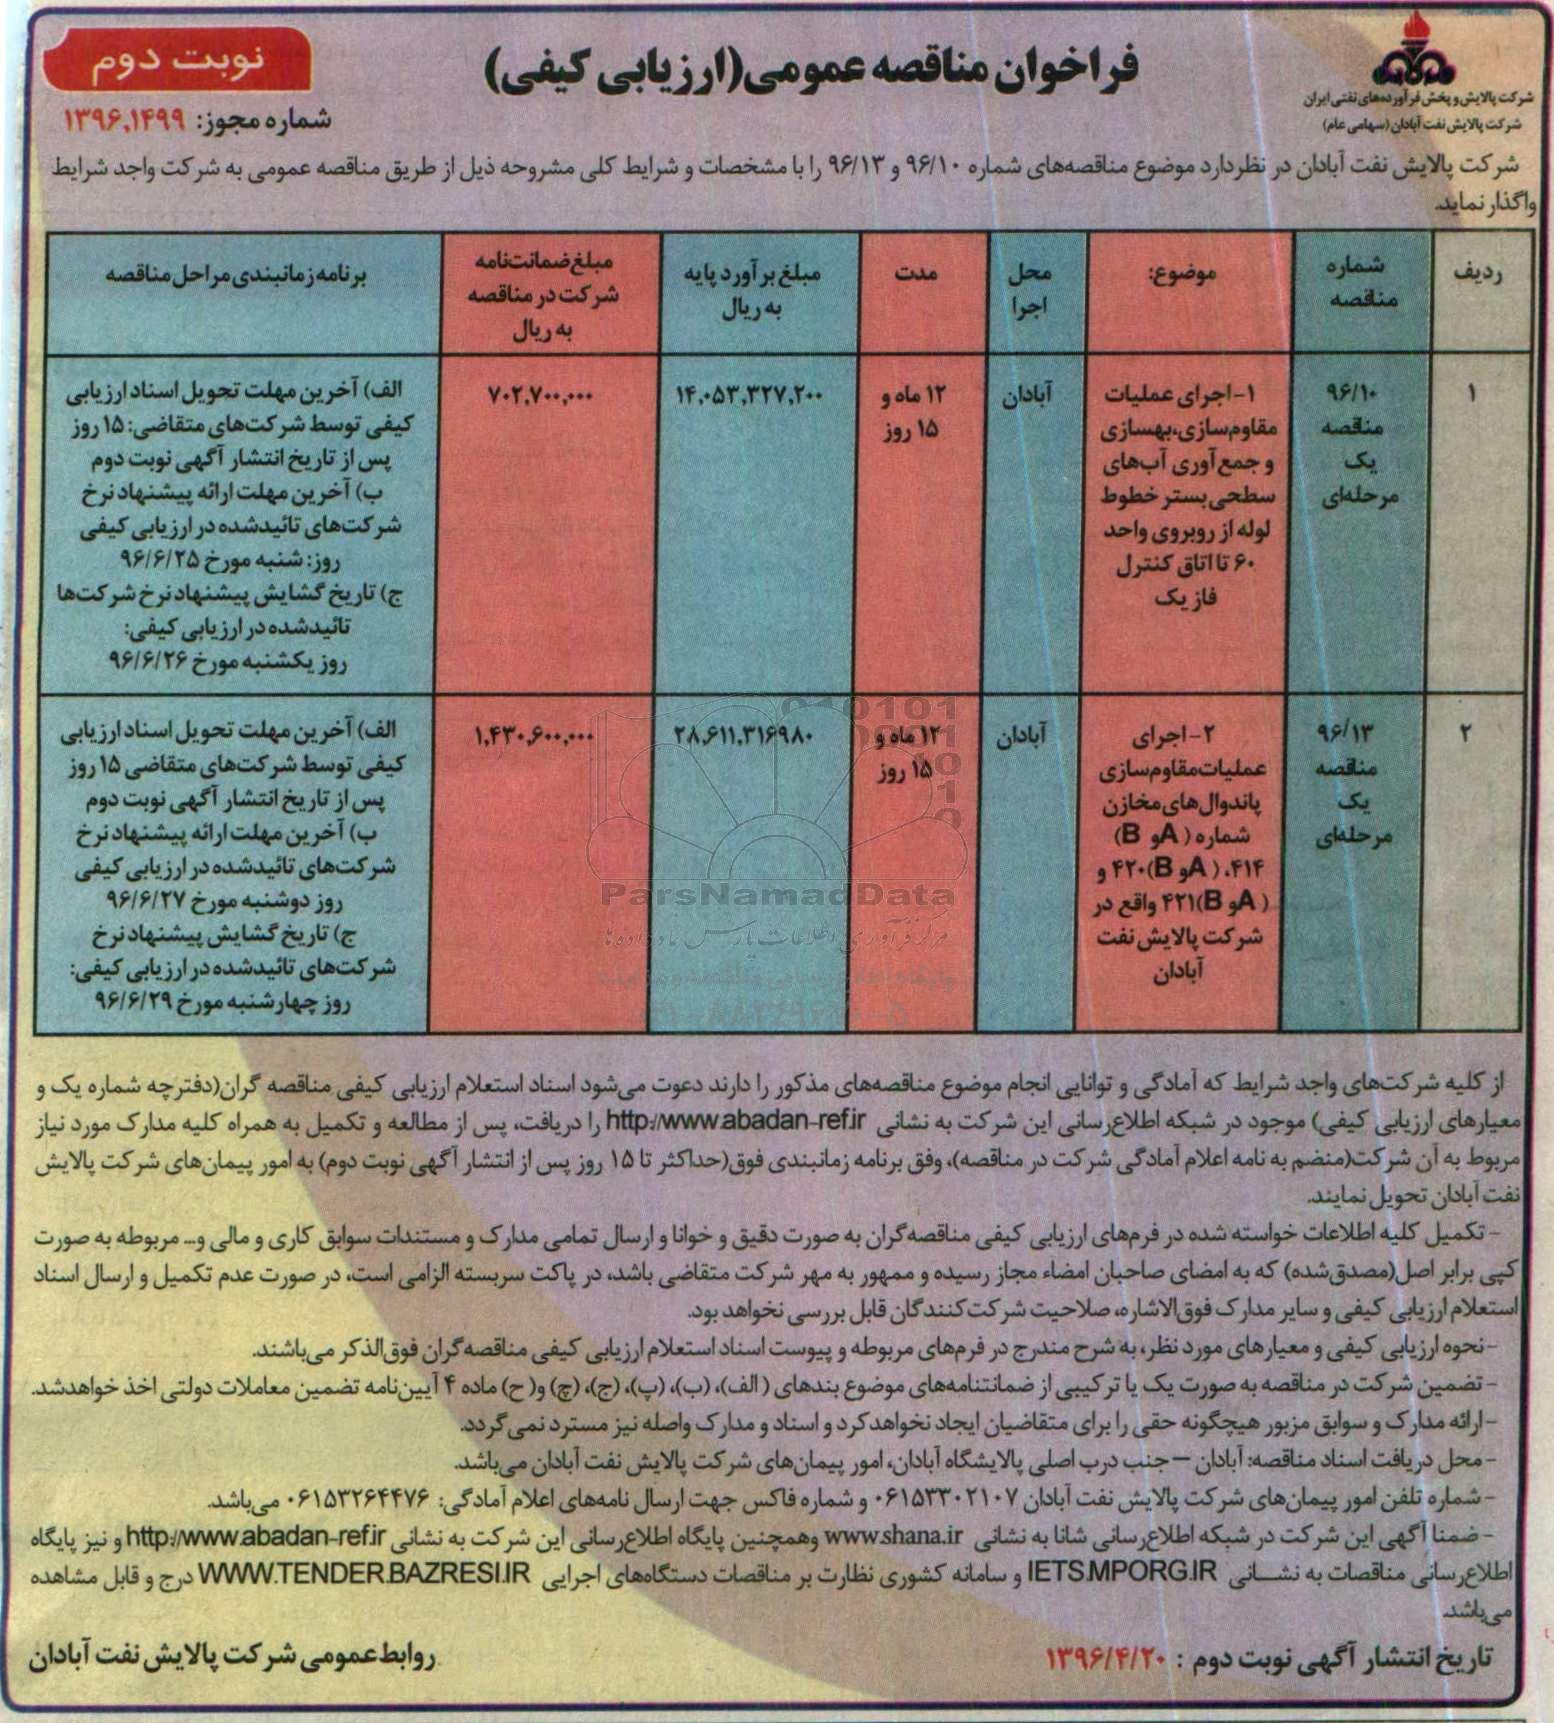 شرکت پالایش و پخش فرآورده‌های نفتی ایران
شرکت پالایش نفت آبادان (سهامی عام)
فراخوان مناقصه عمومی(ارزیابی کیفی)
نوبت دوم
شماره مجوز: ۱۳۹۶,۱۴۹۹
شرکت پالایش نفت آبادان در نظردارد موضوع مناقصه‌های شماره ۹۶/۱۰ و ۹۶/۱۳ را با مشخصات و شرایط کلی مشروحه ذیل از طریق مناقصه عمومی به شرکت واجد شرایط
واگذار نماید.
ردیف
شماره
مناقصه
موضوع:
محل
اجرا
مدت
مبلغ برآورد پایه
به ریال
مبلغ ضمانت‌نامه
شرکت در مناقصه
به ریال
برنامه زمانبندی مراحل مناقصه
۱
۹۶/۱۰
مناقصه
یک
مرحله‌ای
۱-اجرای عملیات
مقاوم‌سازی،بهسازی
و جمع‌آوری آب‌های
سطحی بستر خطوط
لوله از روبروی واحد
۶۰ تا اتاق کنترل
فاز یک
آبادان
۱۲ ماه و
۱۵ روز
۱۴,۰۵۳,۳۲۷,۲۰۰
۷۰۲,۷۰۰,۰۰۰
الف) آخرین مهلت تحویل اسناد ارزیابی
کیفی توسط شرکت‌های متقاضی: ۱۵ روز
پس از تاریخ انتشار آگهی نوبت دوم
ب) آخرین مهلت ارائه پیشنهاد نرخ
شرکت‌های تائیدشده در ارزیابی کیفی
روز: شنبه مورخ ۹۶/۶/۲۵
ج) تاریخ گشایش پیشنهاد نرخ شرکت‌ها
تائیدشده در ارزیابی کیفی:
روز یکشنبه مورخ ۹۶/۶/۲۶
۲
۹۶/۱۳
مناقصه
یک
مرحله‌ای
۲-اجرای
عملیات‌مقاوم‌سازی
پاندوال‌های‌مخازن
شماره ( A و B)
۴۱۴، ( A و B)۴۲۰ و
( A و B)۴۲۱ واقع در
شرکت پالایش نفت
آبادان
آبادان
۱۲ ماه و
۱۵ روز
۲۸,۶۱۱,۳۱۶۹۸۰
۱,۴۳۰,۶۰۰,۰۰۰
الف) آخرین مهلت تحویل اسناد ارزیابی
کیفی توسط شرکت‌های متقاضی ۱۵ روز
پس از تاریخ انتشار آگهی نوبت دوم
ب) آخرین مهلت ارائه پیشنهاد نرخ
شرکت‌های تائیدشده در ارزیابی کیفی
روز دوشنبه مورخ ۹۶/۶/۲۷
ج) تاریخ گشایش پیشنهاد نرخ
شرکت‌های تائیدشده در ارزیابی کیفی:
روز چهارشنبه مورخ ۹۶/۶/۲۹
ParsNamadData
از کلیه شرکت‌های واجد شرایط که آمادگی و توانایی انجام موضوع مناقصه‌های مذکور را دارند دعوت می‌شود اسناد استعلام ارزیابی کیفی مناقصه گران(دفترچه شماره یک و
معیارهای ارزیابی کیفی) موجود در شبکه اطلاع‌رسانی این شرکت به نشانی http://www.abadan-ref.ir را دریافت، پس از مطالعه و تکمیل به همراه کلیه مدارک مورد نیاز
مربوط به آن شرکت(منضم به نامه اعلام آمادگی شرکت در مناقصه)، وفق برنامه زمانبندی فوق(حداکثر تا ۱۵ روز پس از انتشار آگهی نوبت دوم) به امور پیمان‌های شرکت پالایش
نفت آبادان تحویل نمایند.
- تکمیل کلیه اطلاعات خواسته شده در فرم‌های ارزیابی کیفی مناقصه‌گران به صورت دقیق و خوانا و ارسال تمامی مدارک و مستندات سوابق کاری و مالی و... مربوطه به صورت
کپی برابر اصل(مصدق‌شده) که به امضای صاحبان امضاء مجاز رسیده و ممهور به مهر شرکت متقاضی باشد، در پاکت سربسته الزامی است، در صورت عدم تکمیل و ارسال اسناد
استعلام ارزیابی کیفی و سایر مدارک فوق‌الاشاره، صلاحیت شرکت‌کنندگان قابل بررسی نخواهد بود.
-نحوه ارزیابی کیفی و معیارهای مورد نظر، به شرح مندرج در فرم‌های مربوطه و پیوست اسناد استعلام ارزیابی کیفی مناقصه‌گران فوق‌الذکر می‌باشند.
- تضمین شرکت در مناقصه به صورت یک یا ترکیبی از ضمانتنامه‌های موضوع بندهای ( الف)، (ب)، (پ)، (ج)، (چ) و( ح) ماده ۴ آیین‌نامه تضمین معاملات دولتی اخذ خواهدشد.
-ارائه مدارک و سوابق مزبور هیچگونه حقی را برای متقاضیان ایجاد نخواهدکرد و اسناد و مدارک واصله نیز مسترد نمی‌گردد.
- محل دریافت اسناد مناقصه: آبادان – جنب درب اصلی پالایشگاه آبادان، امور پیمان‌های شرکت پالایش نفت آبادان می‌باشد.
- شماره تلفن امور پیمان‌های شرکت پالایش نفت آبادان ۰۶۱۵۳۳۰۲۱۰۷ و شماره فاکس جهت ارسال نامه‌های اعلام آمادگی: ۰۶۱۵۳۲۶۴۴۷۶ می‌باشد.
- ضمنا آگهی این شرکت در شبکه اطلاع‌رسانی شانا به نشانی www.shana.ir وهمچنین پایگاه اطلاع‌رسانی این شرکت به نشانی http://www.abadan-ref.ir و نیز پایگاه
اطلاع‌رسانی مناقصات به نشـــانی IETS.MPORG.IR و سامانه کشوری نظارت بر مناقصات دستگاه‌های اجرایی WWW.TENDER.BAZRESI.IR درج و قابل مشاهده
می‌باشد.
تاریخ انتشار آگهی نوبت دوم : ۱۳۹۶/۴/۲۰
روابط عمومی شرکت پالایش نفت آبادان